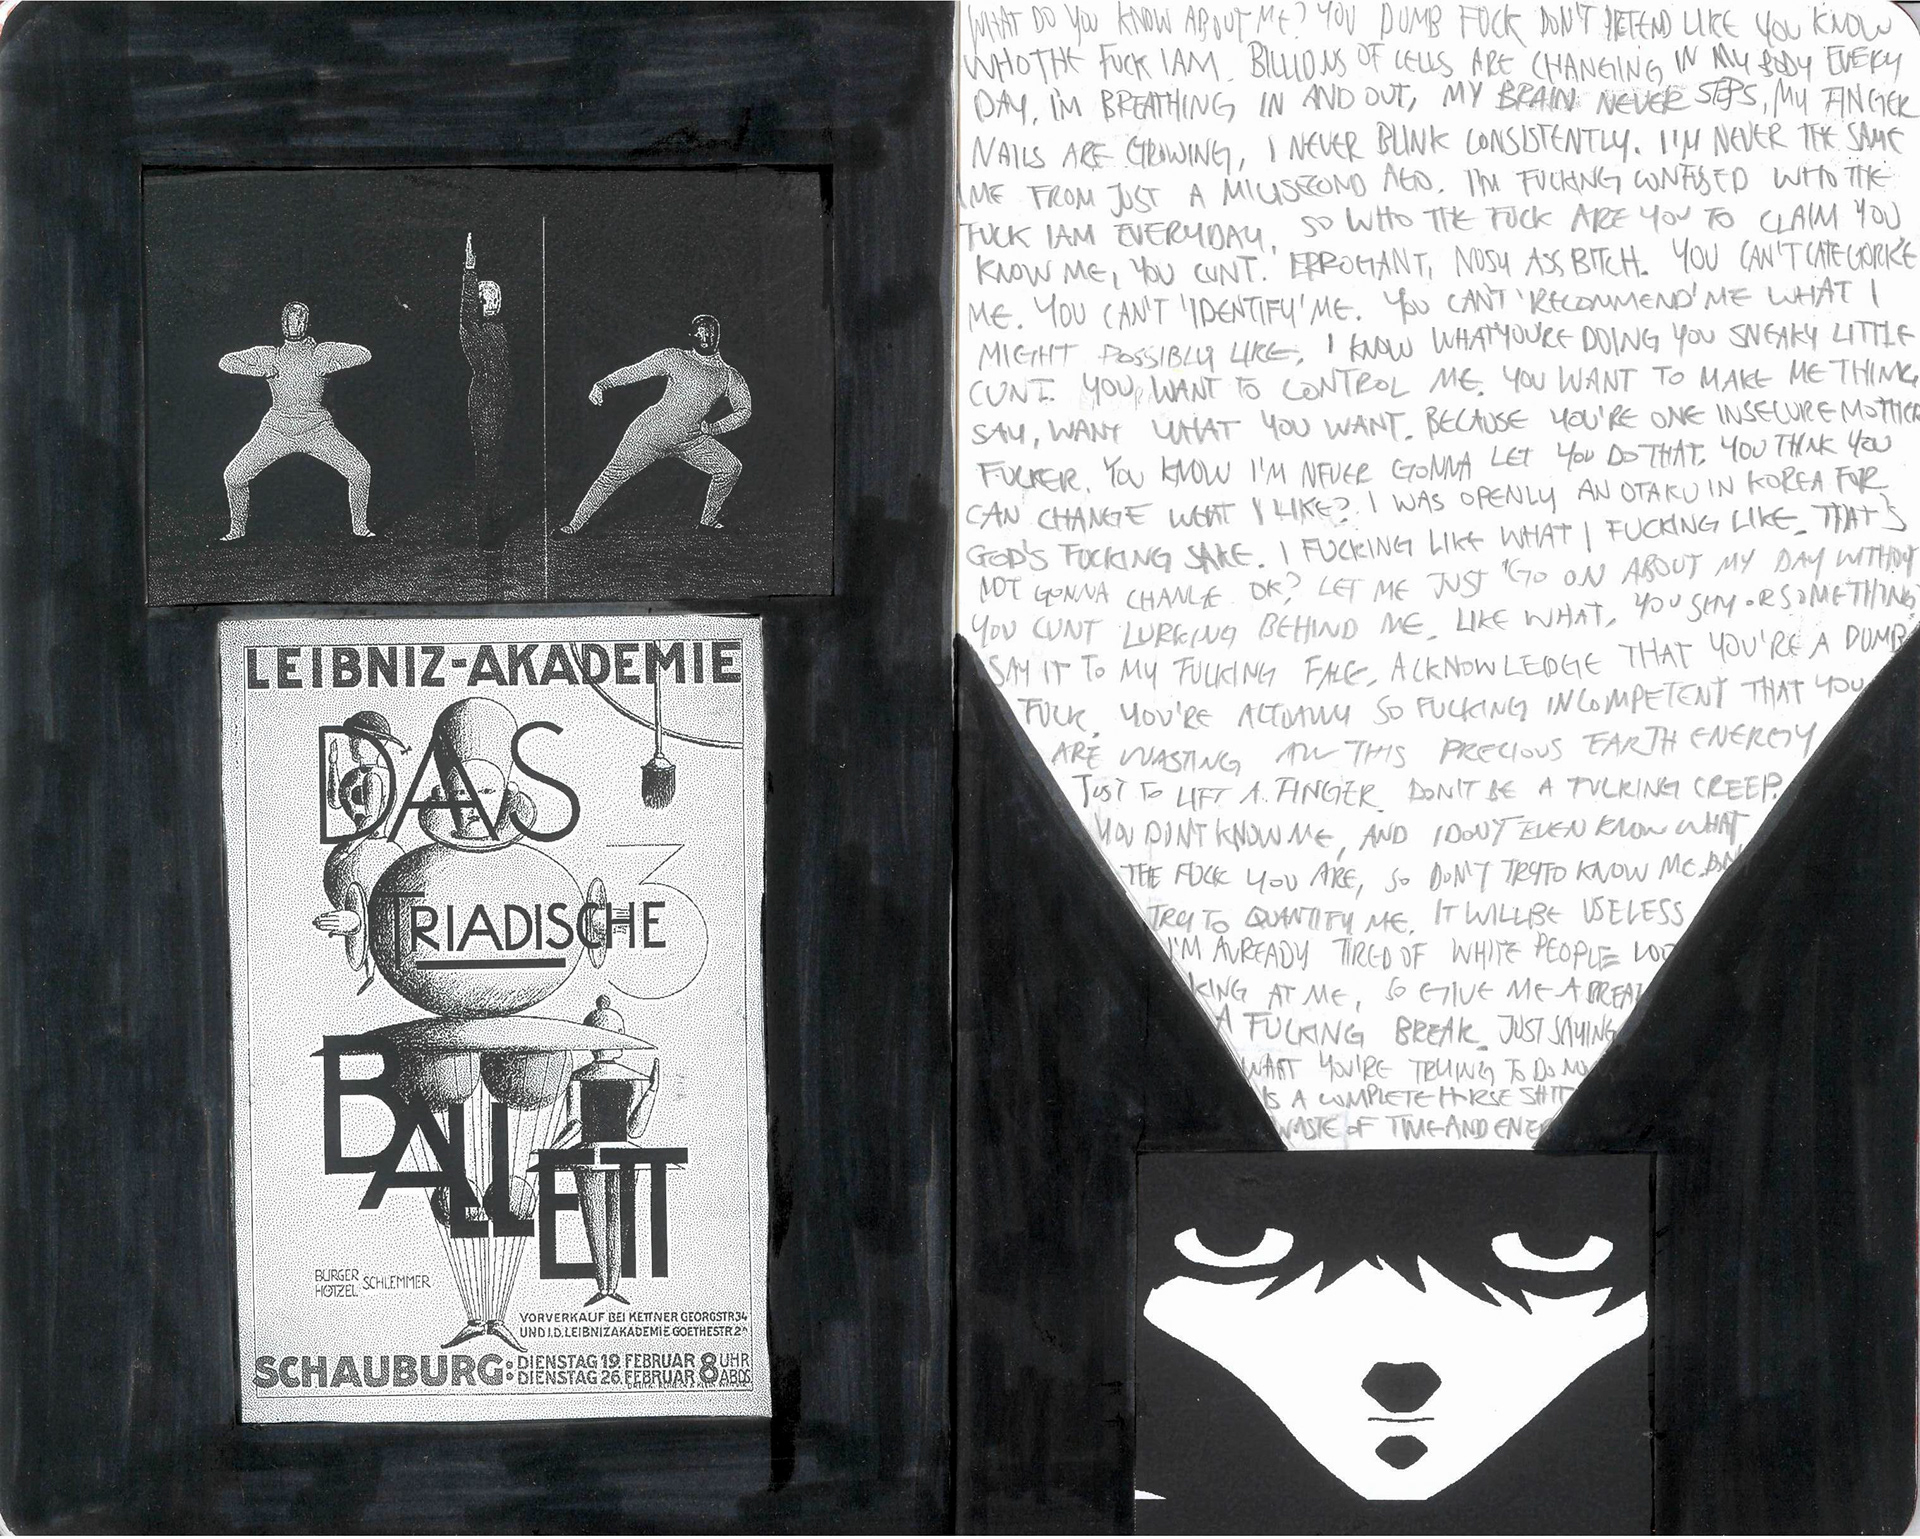 LEIBNIZ-AKADEMIE
DAS
TRIADISCHE
3
BALLETT
BURGER
HÖTZEL SCHLEMMER
VORVERKAUF BEI KETTNER GEORGSTR34
UND I.D. LEIBNIZAKADEMIE GOETHESTR 2A
SCHAUBURG: DIENSTAG 19. FEBRUAR 8 UHR
DIENSTAG 26. FEBRUAR ABDS
WHAT DO YOU KNOW ABOUT ME? YOU DUMB FUCK DON'T PRETEND LIKE YOU KNOW
WHO THE FUCK I AM. BILLIONS OF CELLS ARE CHANGING IN MY BODY EVERY
DAY, I'M BREATHING IN AND OUT, MY BRAIN NEVER STOPS, MY FINGER
NAILS ARE GROWING, I NEVER BLINK CONSISTENTLY. I'M NEVER THE SAME
ME FROM JUST A MILISECOND AGO. I'M FUCKING CONFUSED WHO THE
FUCK I AM EVERYDAY, SO WHO THE FUCK ARE YOU TO CLAIM YOU
KNOW ME, YOU CUNT. ERROGANT, NOSY ASS BITCH. YOU CAN'T CATEGORIZE
ME. YOU CAN'T 'IDENTIFY' ME. YOU CAN'T 'RECOMMEND' ME WHAT I
MIGHT POSSIBLY LIKE, I KNOW WHAT YOU'RE DOING YOU SNEAKY LITTLE
CUNT. YOU WANT TO CONTROL ME. YOU WANT TO MAKE ME THINK,
SAY, WANT WHAT YOU WANT. BECAUSE YOU'RE ONE INSECURE MOTHER
FUCKER. YOU KNOW I'M NEVER GONNA LET YOU DO THAT. YOU THINK YOU
CAN CHANGE WHAT I LIKE? I WAS OPENLY AN OTAKU IN KOREA FOR
GOD'S FUCKING SAKE. I FUCKING LIKE WHAT I FUCKING LIKE. THAT'S
NOT GONNA CHANGE OK? LET ME JUST GO ON ABOUT MY DAY WITHOUT
YOU CUNT LURKING BEHIND ME. LIKE WHAT, YOU SHY OR SOMETHING?
SAY IT TO MY FUCKING FACE, ACKNOWLEDGE THAT YOU'RE A DUMB
FUCK. YOU'RE ACTUALLY SO FUCKING INCOMPETENT THAT YOU
ARE WASTING ALL THIS PRECIOUS EARTH ENERGY
JUST TO LIFT A FINGER. DON'T BE A FUCKING CREEP.
YOU DON'T KNOW ME, AND I DON'T EVEN KNOW WHAT
THE FUCK YOU ARE, SO DON'T TRY TO KNOW ME.
TRY TO QUANTIFY ME. IT WILL BE USELESS
I'M ALREADY TIRED OF WHITE PEOPLE LOO
KING AT ME, SO GIVE ME A BREAK
A FUCKING BREAK. JUST SAYING
WHAT YOU'RE TRYING TO DO
IS A COMPLETE HORSE SHIT
WASTE OF TIME AND ENE